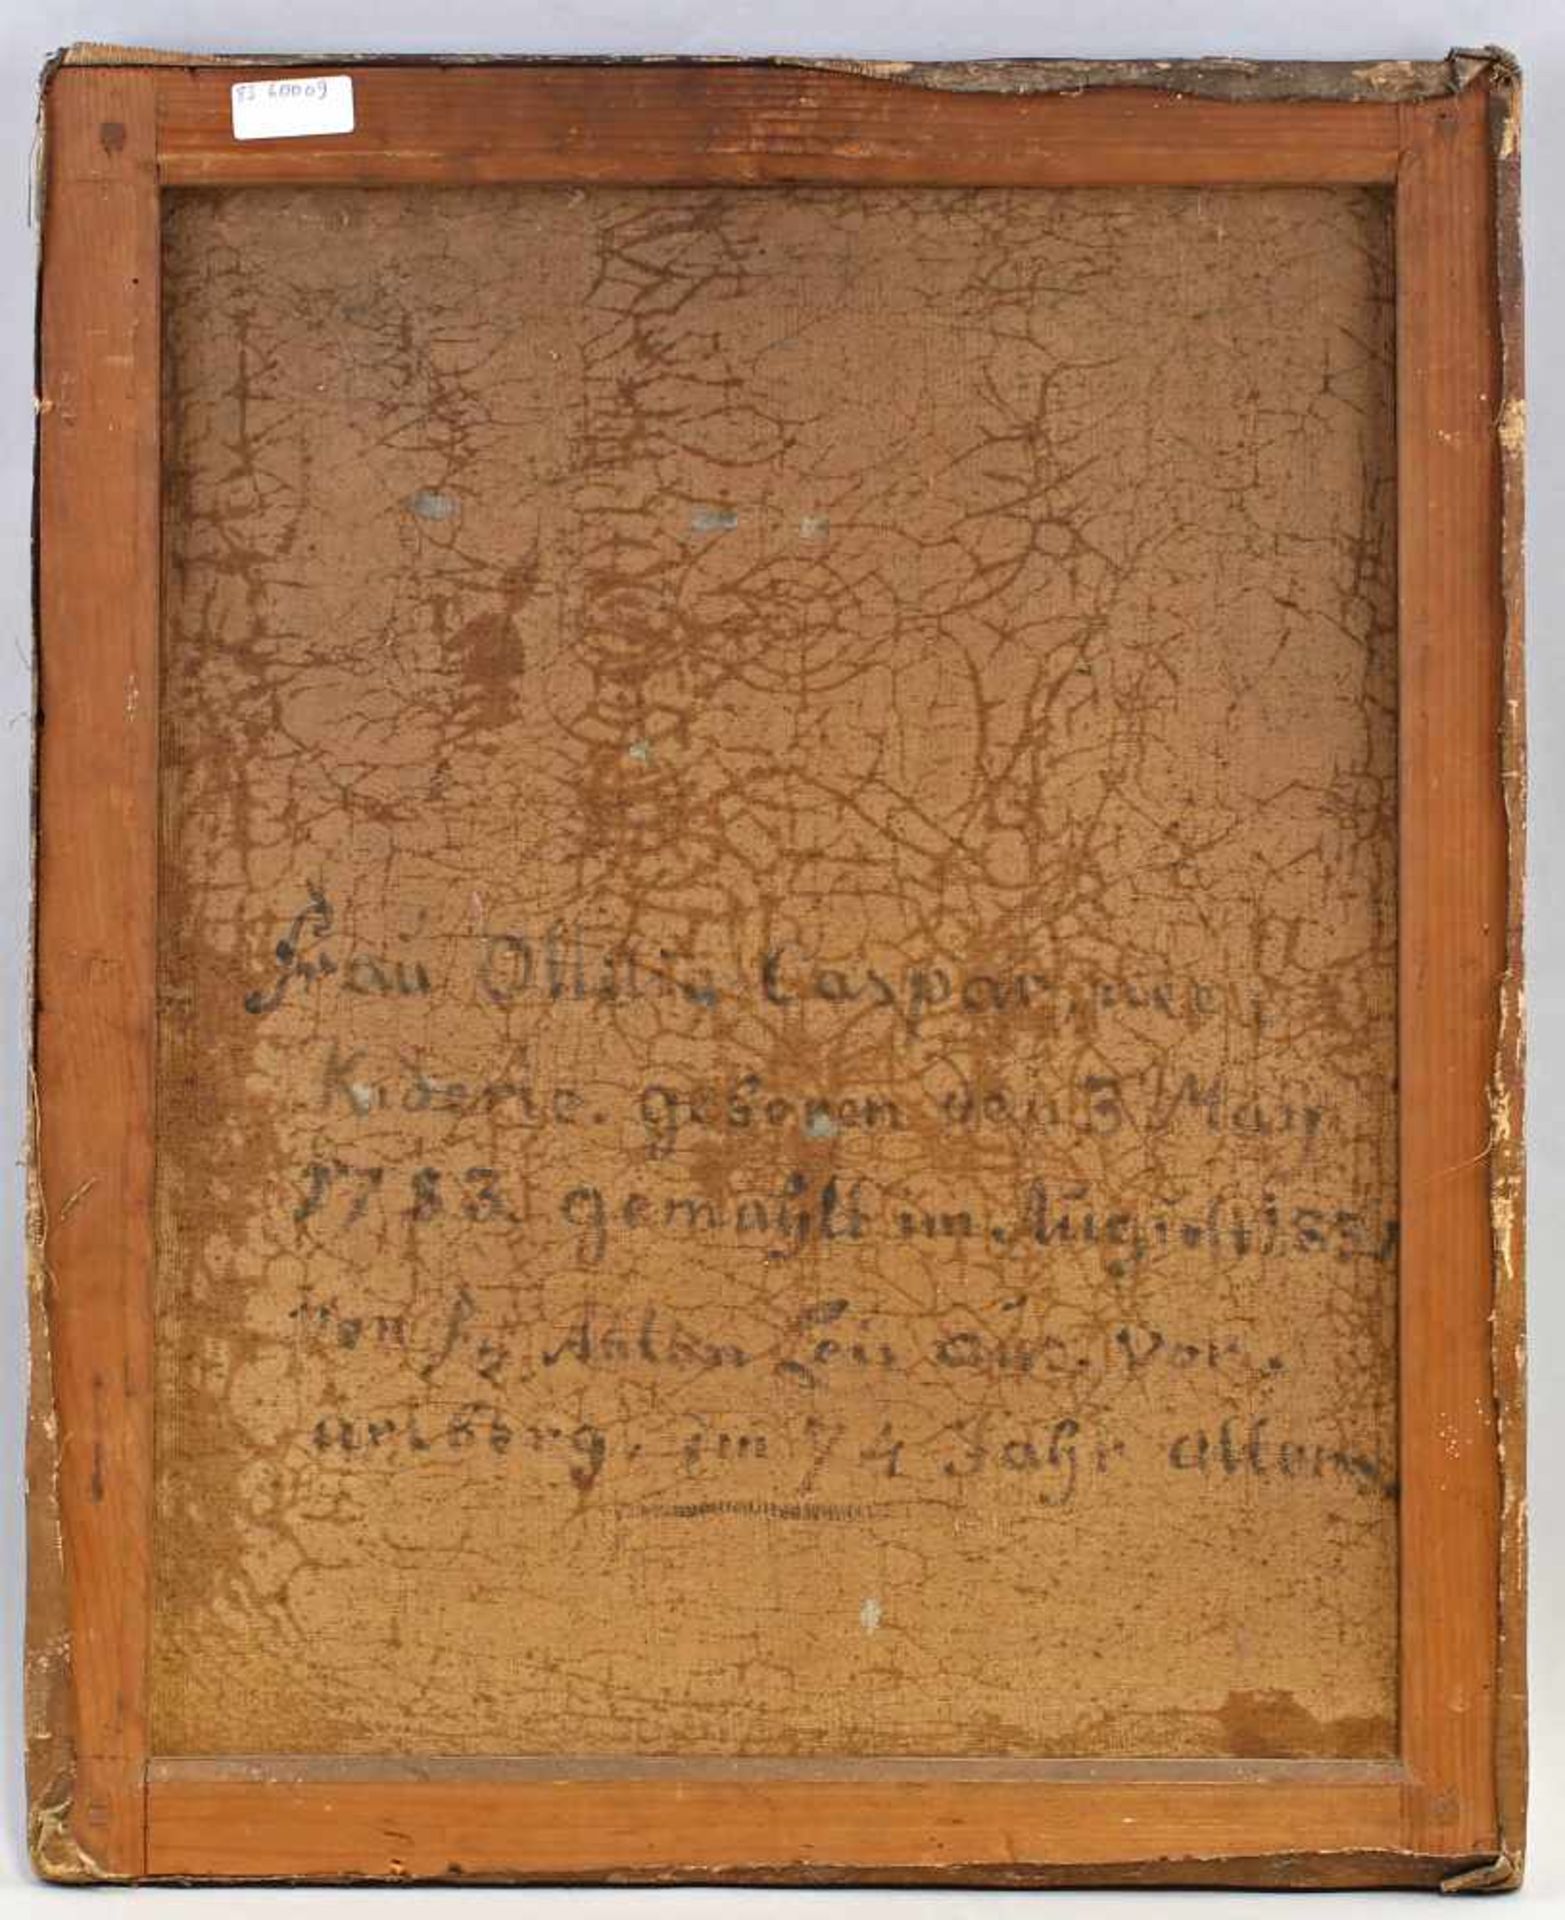 83 60009
Frau Ottilia Caspar, nee,
Kiderle. geboren den 3 May
1783 gemahlt im August 1851
von Anton aus. Vor.
arlberg. im 74 Jahr